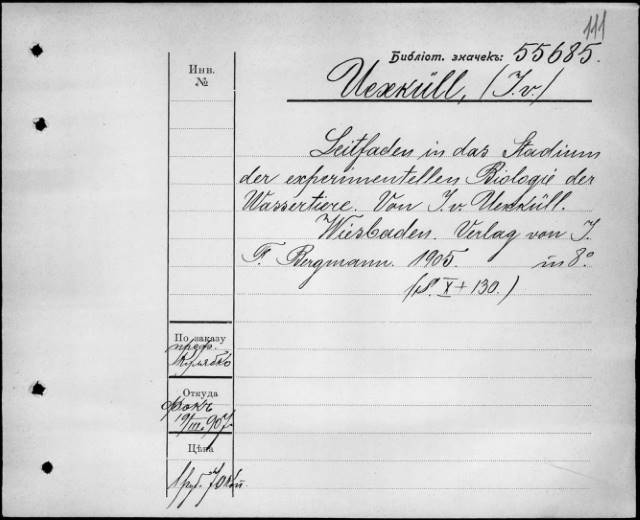 111
Библіот. значекъ: 55685.
Инв.
№
Uexküll, (J. v.)
Leitfaden in das Stadium
der experimentellen Biologie der
Wassertiere. Von J. v. Uexküll.
Wiesbaden. Verlag von J.
F. Bergmann. 1905. in 8.°
(S. X + 130.)
По заказу
проф.
Кулябко
Откуда
Фокъ
19/III 907.
Цѣна
1 руб. 70 коп.